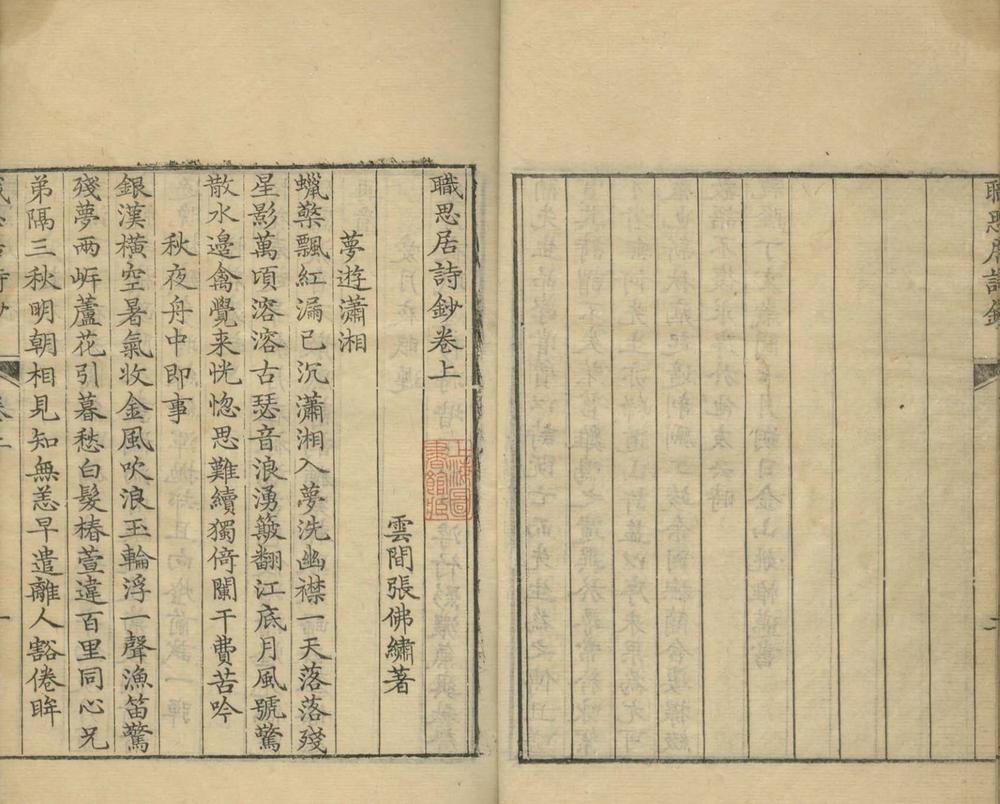 職思居詩鈔
職思居詩鈔卷上
雲間張佛繡著
夢遊瀟湘
蠟檠飄紅漏已沉瀟湘入夢洗幽襟一天落落殘
星影萬頃溶溶古瑟音浪湧簸翻江底月風號驚
散水邊禽覺来恍惚思難續獨倚闌干費苦吟
秋夜舟中即事
銀漢橫空暑氣收金風吹浪玉輪浮一聲漁笛驚
殘夢兩岍蘆花引暮愁白髮椿萱違百里同心兄
弟隔三秋明朝相見知無恙早遣離人豁倦眸
卷上
一
上海圖書館藏